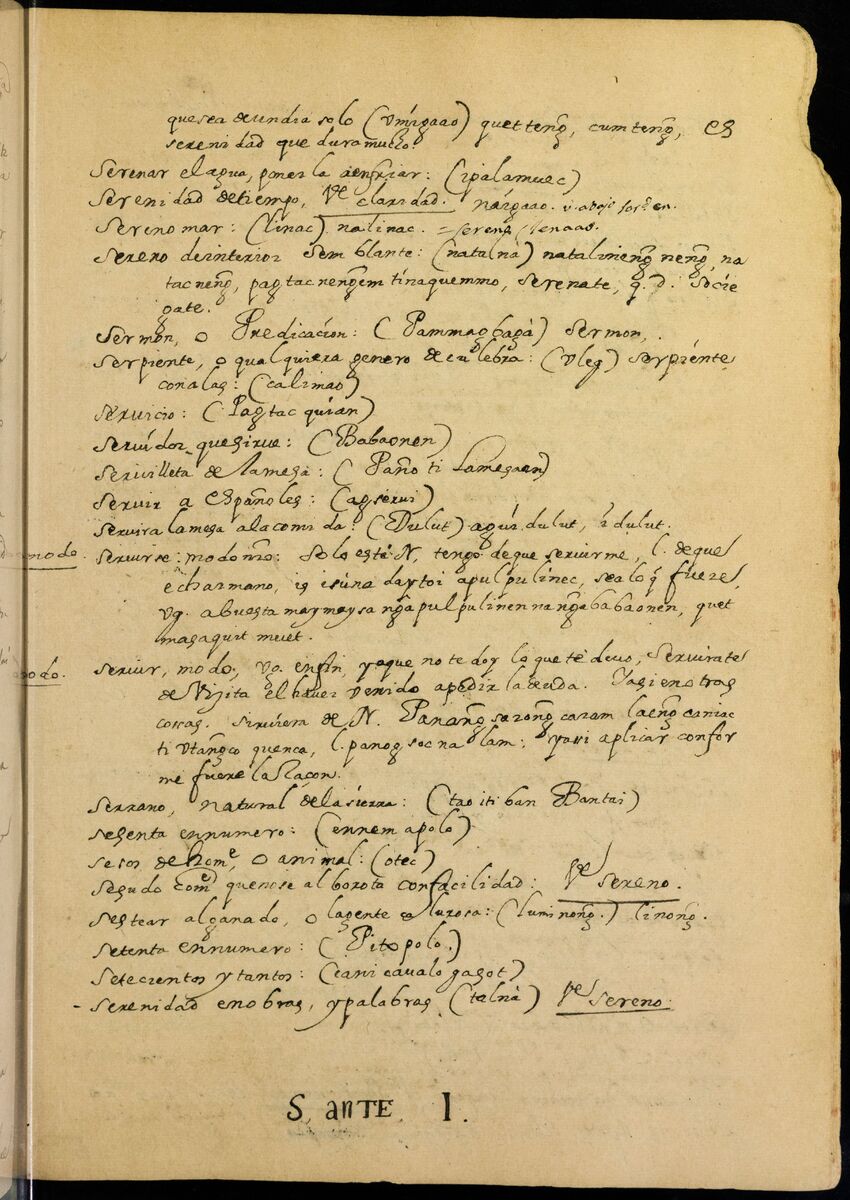 que sea de un dia solo (vmígaao) quet teng̃, cum teng̃, es
serenidad que dura mucho.
Serenar el agua, poner la a enfriar: (ipalamuec)
Serenidad de tiempo, Ve claridad. naígaao. v. abajo
Sereno mar: (linac) nalinac.
Sereno de interior Semblante: (natalna) natalineng̃ neng̃, na
tac neng̃, pag tac neng̃em tínaquemmo, Serenate, q. d. Socie
gate.
Sermon, o Predicacion: (Pammagbagà) Sermon,.
Serpiente, o qualquiera genero de culebra: (vleg) Serpiente
con alas: (calimao)
Servicio: (Pagtac quian)
Servidor que sirve: (Babaonen)
Servilleta de la mesa: (Paño ti Lamesaen)
Servir a Españoles: (agservi)
Servir a la mesa a la comida: (Dulut) aguí dulut, i dulut.
Servirse: modo nro: Solo este N, tengo de que servirme, l. de que
echar mano, is isúna daytoi apulpulinec, sea lo q̃ fuere,
vg. abuesta maymaysa ng̃a pulpulinen nang̃a babaonen, quet
masaquit meuet.
Servir, modo, vg. enfin, ya que no te doy lo que te devo, Servirate
de Visita el haver venido a pedir la deuda. Y asi en otras
cosas. Sirviera de N. Panang̃ sarong̃ caram laeng̃ caniac
ti vtang̃co quenca, l. panog soc na lam: y asi aplicar confor
me fuere la Raçon.
Serrano, natural de la sierra: (tao iti ban Bantai)
Sesenta en numero: (ennem apolo)
Sesos de home, o animal: (otec)
Sesudo home que no se alborota con facilidad: Ve Sereno.
Sestear al ganado, o la gente calurosa: (luminong̃.) linong̃.
Setenta en numero: (Pito polo.)
Setecientos y tantos: (cani caualo gasot)
- Serenidad en obras, y palabras (talnà) Ve Sereno.
S, anTE, I.